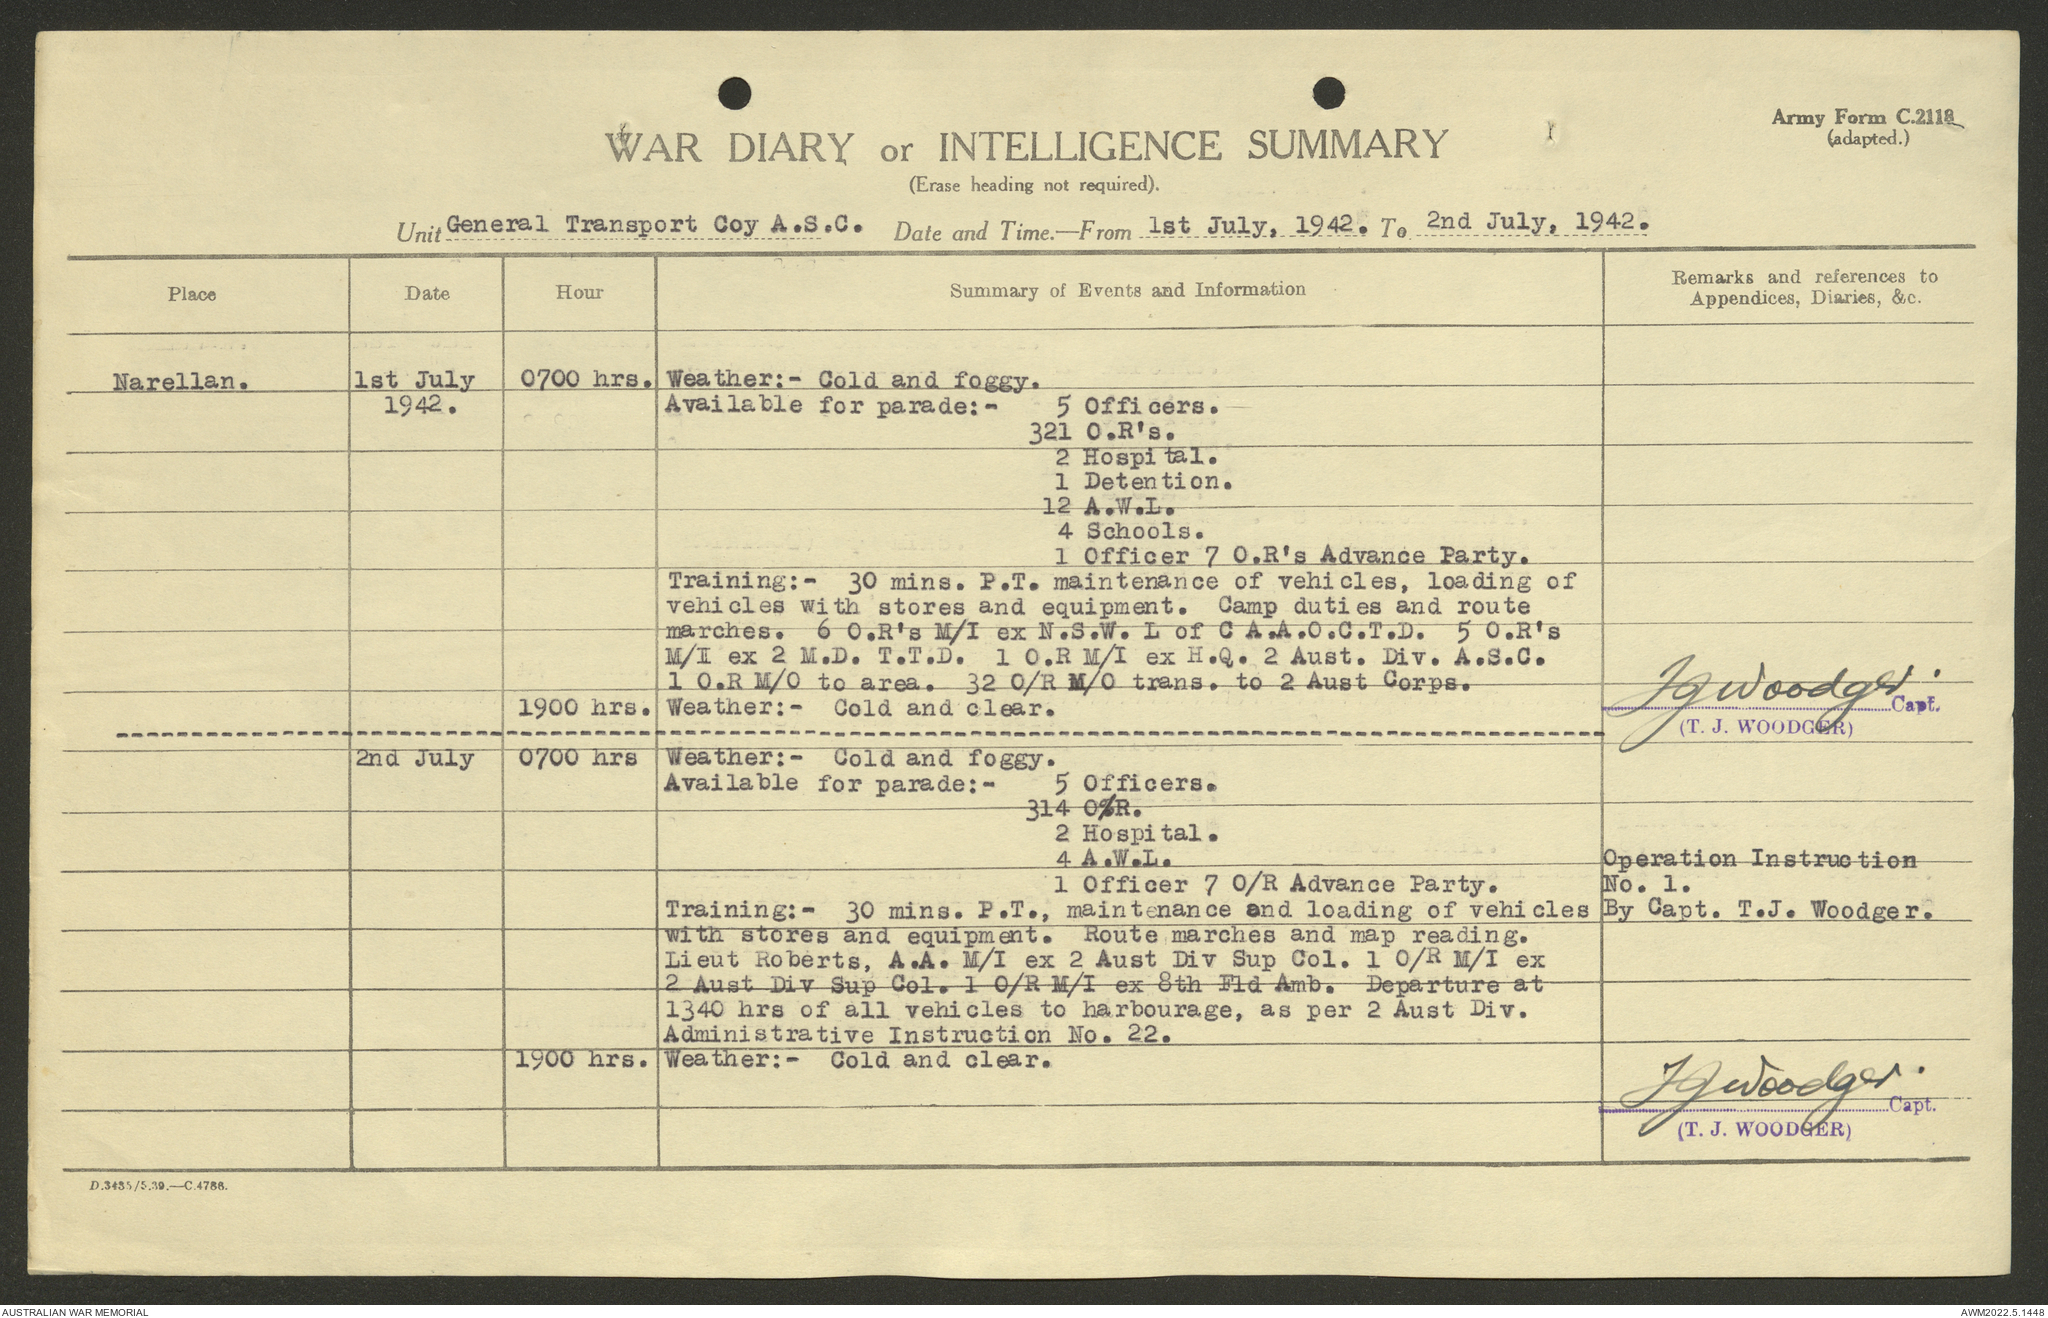 Army Form C.2118
(adapted.)
WAR DIARY or INTELLIGENCE SUMMARY
(Erase heading not required).
Unit General Transport Coy A.S.C. Date and Time.—From 1st July, 1942. To 2nd July, 1942.
Place Date Hour Summary of Events and Information Remarks and references to
Appendices, Diaries, &c.
Narellan. 1st July 0700 hrs. Weather:- Cold and foggy.
1942. Available for parade:- 5 Officers.
321 O.R's.
2 Hospital.
1 Detention.
12 A.W.L.
4 Schools.
1 Officer 7 O.R's Advance Party.
Training:- 30 mins. P.T. maintenance of vehicles, loading of
vehicles with stores and equipment. Camp duties and route
marches. 6 O.R's M/I ex N.S.W. L of C A.A.O.C.T.D. 5 O.R's
M/I ex 2 M.D. T.T.D. 1 O.R M/I ex H.Q. 2 Aust. Div. A.S.C.
1 O.R M/O to area. 32 O/R M/O trans. to 2 Aust Corps.
1900 hrs. Weather:- Cold and clear.
TJWoodger. Capt.
(T. J. WOODGER)
2nd July 0700 hrs Weather:- Cold and foggy.
Available for parade:- 5 Officers.
314 O/R.
2 Hospital.
4 A.W.L. Operation Instruction
1 Officer 7 O/R Advance Party. No. 1.
Training:- 30 mins. P.T., maintenance and loading of vehicles By Capt. T.J. Woodger.
with stores and equipment. Route marches and map reading.
Lieut Roberts, A.A. M/I ex 2 Aust Div Sup Col. 1 O/R M/I ex
2 Aust Div Sup Col. 1 O/R M/I ex 8th Fld Amb. Departure at
1340 hrs of all vehicles to harbourage, as per 2 Aust Div.
Administrative Instruction No. 22.
1900 hrs. Weather:- Cold and clear.
TJWoodger. Capt.
(T. J. WOODGER)
D.3435/5.39.—C.4786.
AUSTRALIAN WAR MEMORIAL AWM2022.5.1448